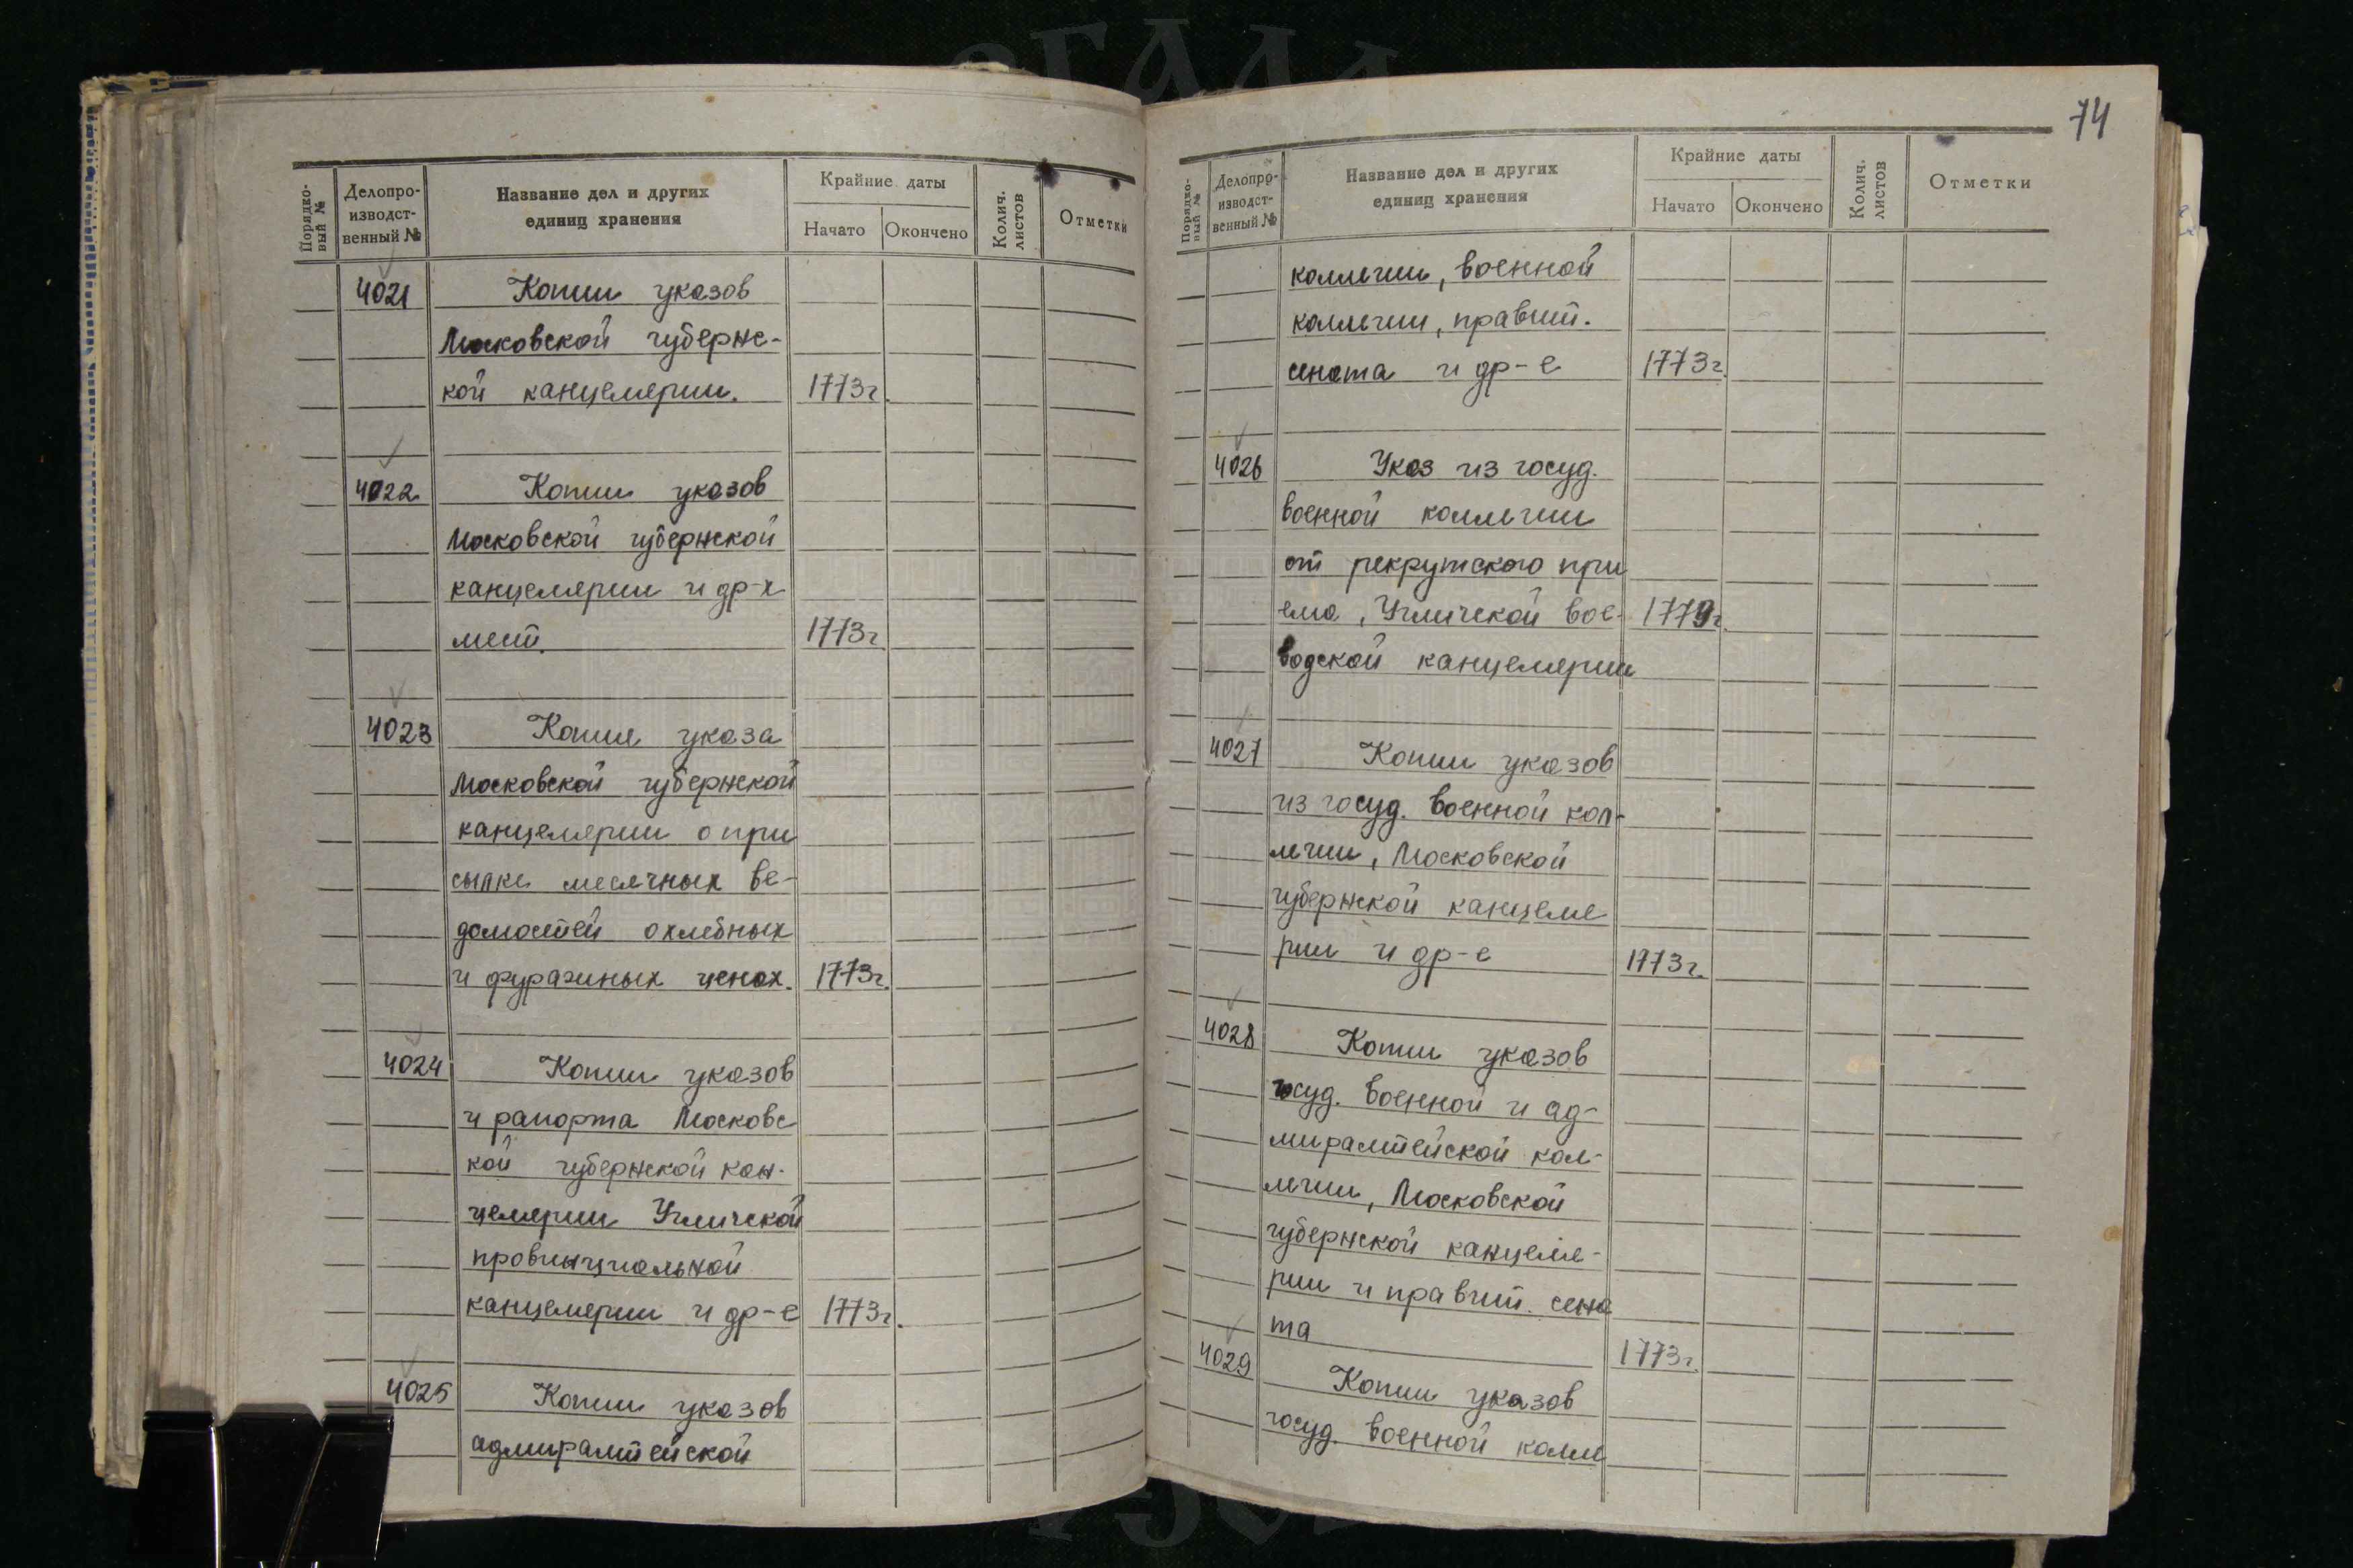 74
Порядко-
вый №
Делопро-
изводст-
венный №
Название дел и других
единиц хранения
Крайние даты
Начато
Окончено
Колич.
листов
Отметки
4021 Копии указов
Московской губернс-
кой канцелярии. 1773г.
4022 Копии указов
Московской губернской
канцелярии и др-х
мест. 1773г.
4023 Копия указа
Московской губернской
канцелярии о при
сылке месячных ве-
домостей о хлебных
и фуражных ценах. 1773г.
4024 Копии указов
и рапорта Московс
кой губернской кан-
целярии Угличской
провинциальной
канцелярии и др-е 1773г.
4025 Копии указов
адмиралтейской
Порядко-
вый №
Делопро-
изводст-
венный №
Название дел и других
единиц хранения
Крайние даты
Начато
Окончено
Колич.
листов
Отметки
коллегии, военной
коллегии, правит.
сената и др-е 1773г.
4026 Указ из госуд.
военной коллегии
от рекрутского при
ема, Угличской вое-
водской канцелярии
4027 Копии указов
из госуд. военной кол-
легии, Московской
губернской канцеля
рии и др-е 1773г.
4028 Копии указов
госуд. военной и ад-
миралтейской кол-
легии, Московской
губернской канцеля-
рии и правит. сена
та 1773г.
4029 Копии указов
госуд. военной колле